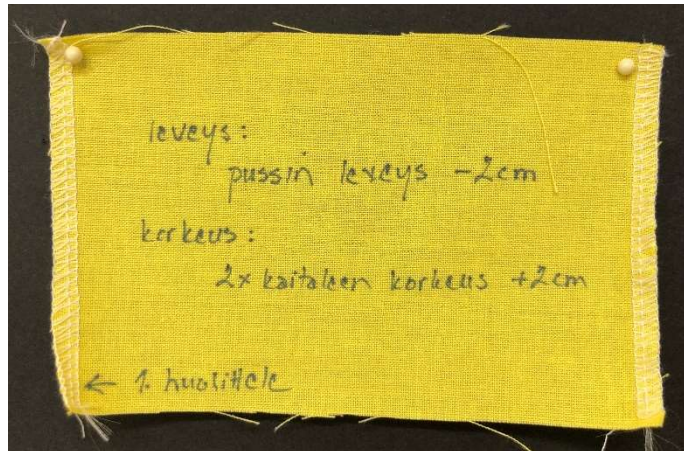 leveys:
pussin leveys -2cm
korkeus:
2x kaitaleen korkeus +2cm
← 1. huolittele